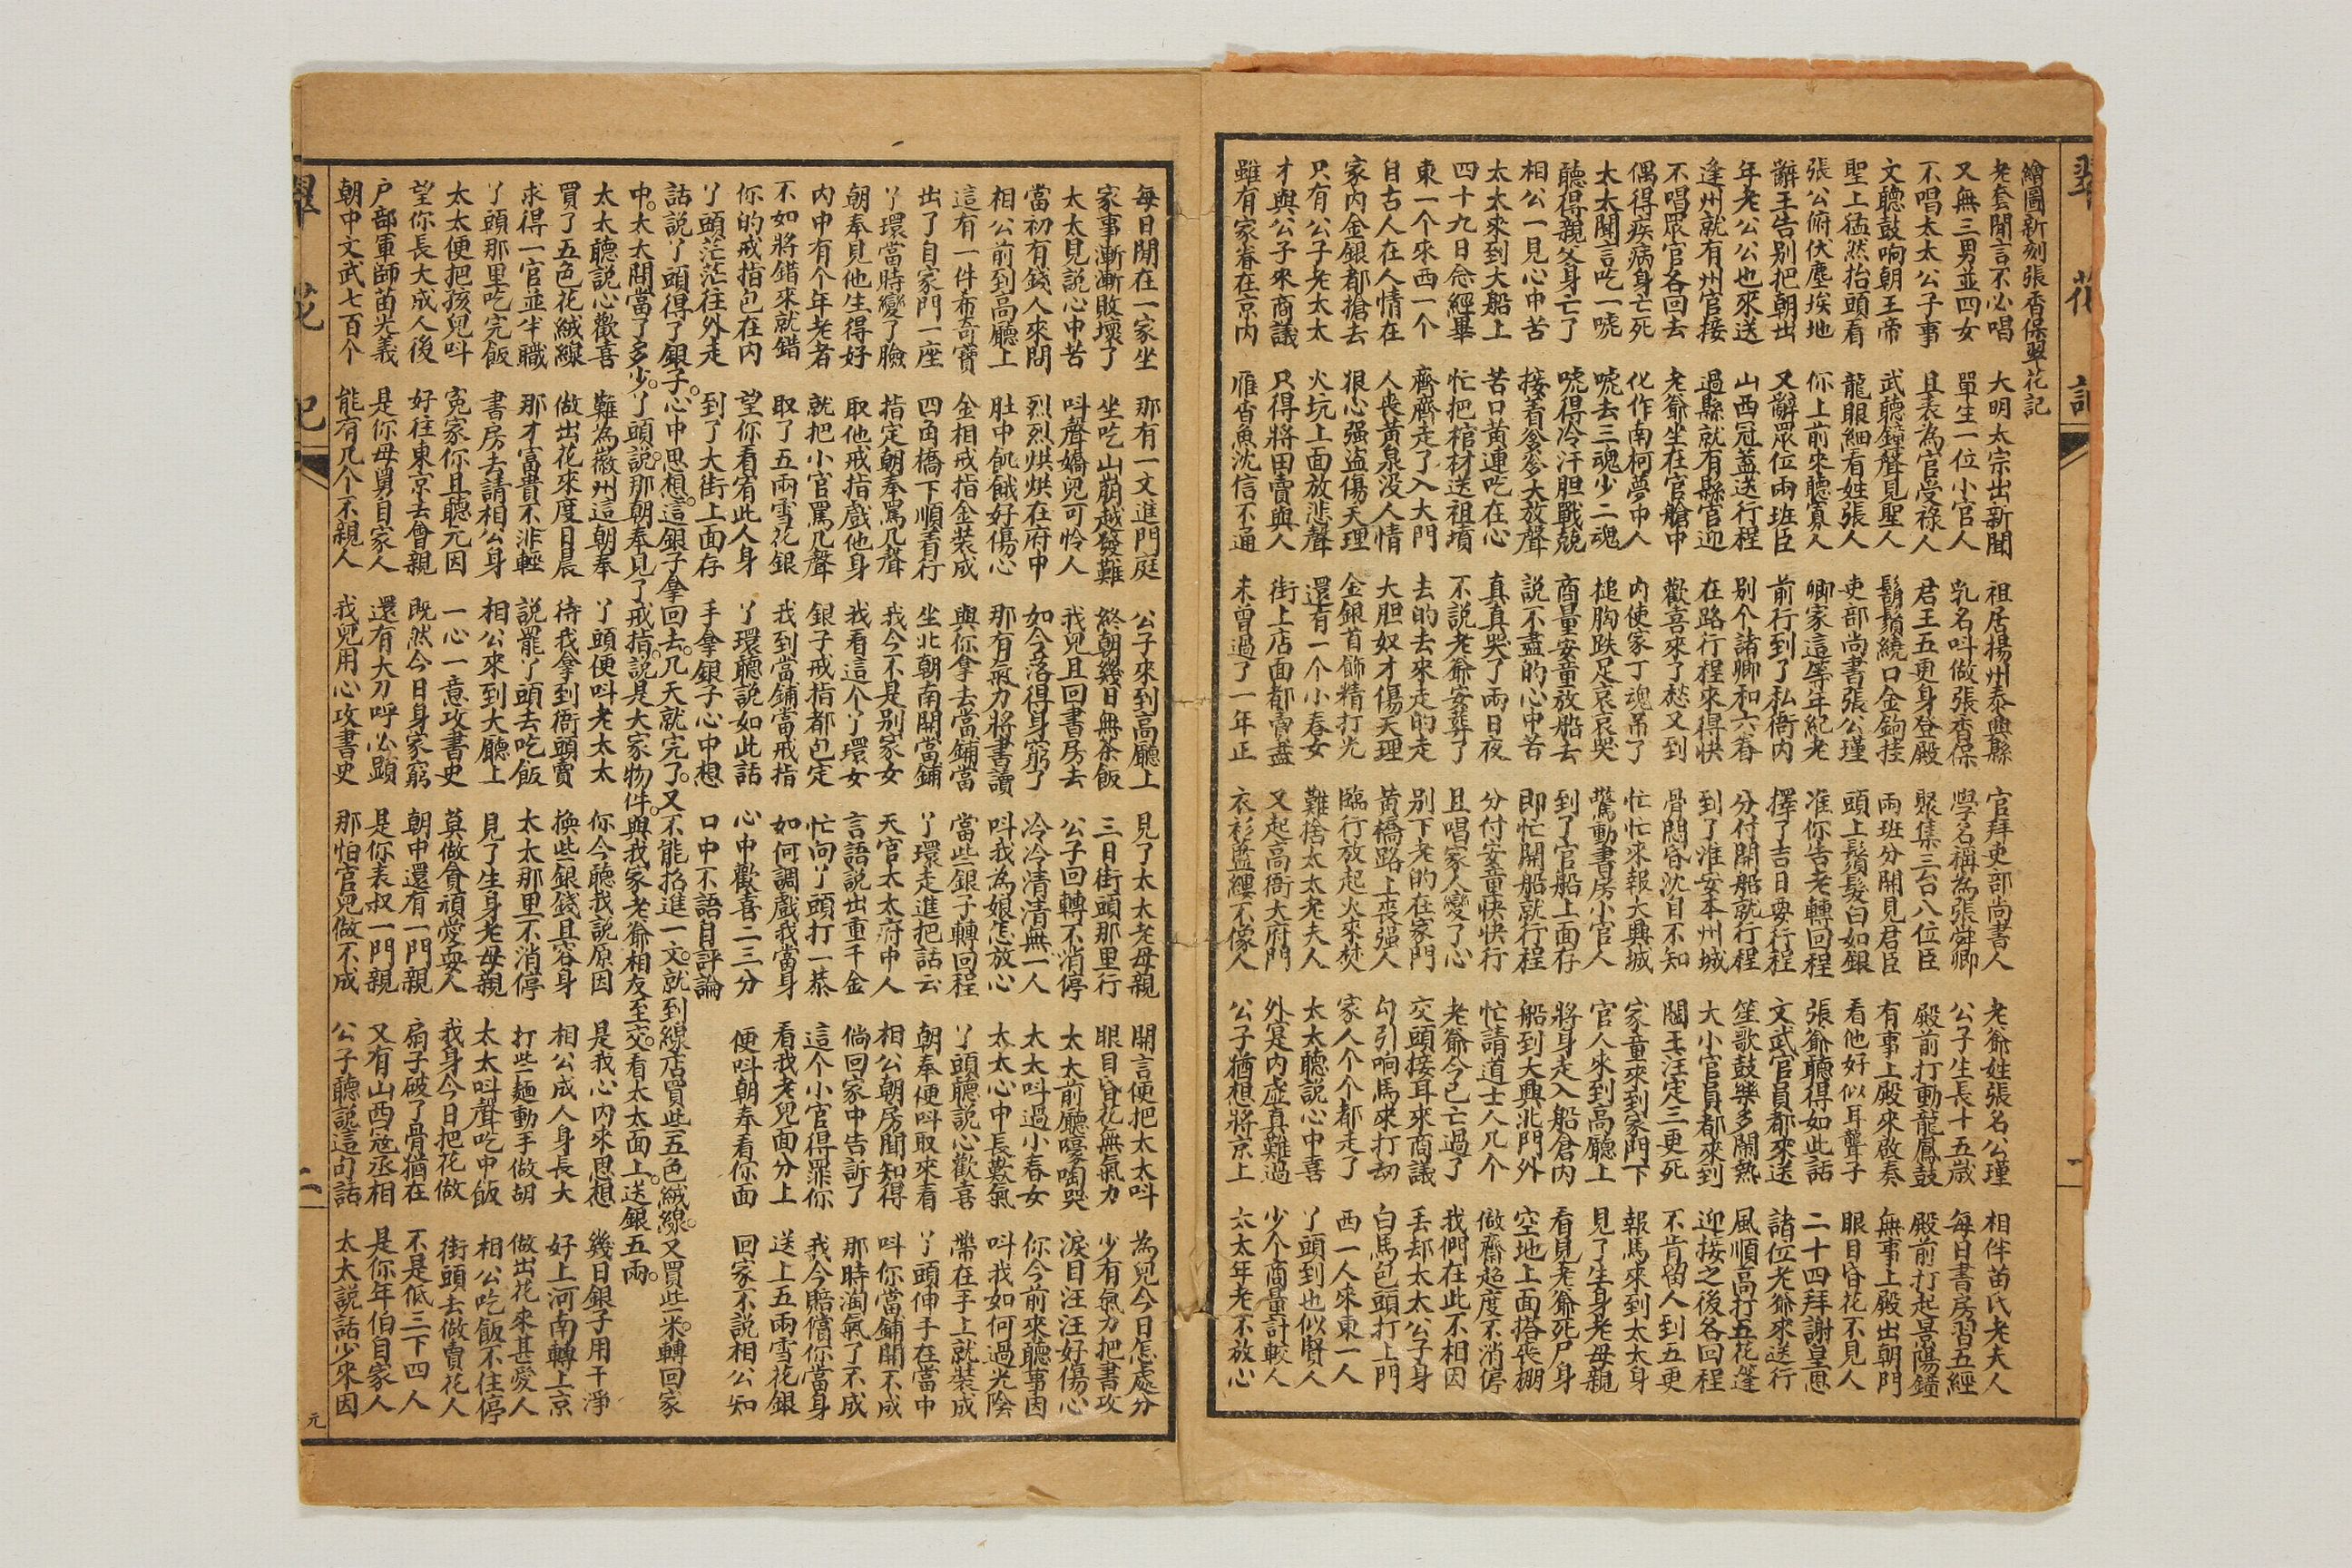 翠花記
一
繪圖新刻張香保翠花記
老套閒言不必唱 大明太宗出新聞 祖居揚州泰興縣 官拜吏部尚書人 老爺姓張名公瑾 相伴苗氏老夫人
又無三男並四女 單生一位小官人 乳名呌做張香保 學名稱為張舜卿 公子生長十五歲 每日書房習五經
不唱太太公子事 且表為官受祿人 君王五更身登殿 聚集三台八位臣 殿前打動龍鳳鼓 殿前打起景陽鐘
文聽鼓响朝王帝 武聽鐘聲見聖人 鬍鬚繞口金鉤挂 兩班分開見君臣 有事上殿來啟奏 無事上殿出朝門
聖上猛然抬頭看 龍眼細看姓張人 吏部尚書張公瑾 頭上鬚髮白如銀 看他好似耳聾子 眼目昏花不見人
張公俯伏塵埃地 你上前來聽寡人 卿家這等年紀老 准你告老轉回程 張爺聽得如此話 二十四拜謝皇恩
辭王告别把朝出 又辭眾位兩班臣 前行到了私衙内 擇了吉日要行程 文武官員都來送 諸位老爺來送行
年老公公也來送 山西冠蓋送行程 别个諸卿和六眷 分付開船就行程 笙歌鼓樂多鬧熱 風順高打五花篷
逢州就有州官接 過縣就有縣官迎 在路行程來得快 到了淮安本州城 大小官員都來到 迎接之後各回程
不唱眾官各回去 老爺坐在官艙中 歡喜來了愁又到 骨悶昏沈自不知 閻王注定三更死 不肯留人到五更
偶得疾病身亡死 化作南柯夢中人 内使家丁魂吊了 忙忙來報大興城 家童來到家門下 報馬來到太太身
太太聞言吃一唬 唬去三魂少二魂 搥胸跌足哀哀哭 驚動書房小官人 官人來到高廳上 見了生身老母親
聽得親爹身亡了 唬得冷汗胆戰兢 商量安童放船去 到了官船上面存 將身走入船倉内 看見老爺死尸身
相公一見心中苦 接着爹爹大放聲 說不盡的心中苦 即忙開船就行程 船到大興北門外 空地上面搭喪棚
太太來到大船上 苦口黃連吃在心 真真哭了兩日夜 分付安童快快行 忙請道士人几个 做齋超度不消停
四十九日念經畢 忙把棺材送祖墳 不説老爺安葬了 且唱家人變了心 老爺今已亡過了 我們在此不相因
東一个來西一个 齊齊走了入大門 去的去來走的走 别下老的在家門 交頭接耳來商議 丢却太太公子身
自古人在人情在 人喪黃泉没人情 大胆奴才傷天理 黃橋路上喪强人 勾引响馬來打刼 白馬包頭打上門
家内金銀都搶去 狠心强盗傷天理 金銀首飾精打光 臨行放起火來焚 家人个个都走了 西一人來東一人
只有公子老太太 火坑上面放悲聲 還有一个小春女 難捨太太老夫人 太太聽説心中喜 丫頭到也似賢人
才與公子來商議 只得將田賣與人 街上店面都賣盡 又起高衙大府門 外寔内虚真難過 少个商量計較人
雖有家眷在京内 雁杳魚沈信不通 未曾過了一年正 衣衫藍縷不像人 公子猶想將京上 太太年老不放心
每日閒在一家坐 那有一文進門庭 公子來到高廳上 見了太太老母親 開言便把太太呌 為兒今日怎處分
家事漸漸敗壞了 坐吃山崩越發難 終朝幾日無茶飯 三日街頭那里行 眼目昏花無氣力 少有氣力把書攻
太太見説心中苦 呌聲嬌兒可怜人 我兒且回書房去 公子回轉不消停 太太前廳嚎啕哭 淚目汪汪好傷心
當初有錢人來問 烈烈烘烘在府中 如今落得身窮了 冷冷清清無一人 太太呌過小春女 你今前來聽事因
相公前到高廳上 肚中飢餓好傷心 那有氣力將書讀 呌我為娘怎放心 太太心中長嘆氣 呌我如何過光陰
這有一件布奇寶 金相戒指金裝成 與你拿去當鋪當 當些銀子轉回程 丫頭聽説心歡喜 帶在手上就裝成
出了自家門一座 四角橋下順着行 坐北朝南開當鋪 丫環走進把話云 朝奉便呌取來看 丫頭伸手在當中
丫環當時變了臉 指定朝奉罵几聲 我今不是别家女 天官太太府中人 相公朝房聞知得 呌你當鋪開不成
朝奉見他生得好 取他戒指戲他身 我看這个丫環女 言語説出重千金 倘回家中告訴了 那時淘氣了不成
内中有个年老者 就把小官罵几聲 銀子戒指都包定 忙向丫頭打一恭 這个小官得罪你 我今賠償你當身
不如將錯來就錯 取了五兩雪花銀 我到當鋪當戒指 如何調戲我當身 看我老兒面分上 送上五兩雪花銀
你的戒指包在内 望你看宥此人身 丫環聽説如此話 心中歡喜二三分 便呌朝奉看你面 回家不説相公知
丫頭茫茫往外走 到了大街上面存 手拿銀子心中想 口中不語自評論
話説丫頭得了銀子。心中思想。這銀子拿回去。几天就完了。又不能招進一文。就到線店買些五色絨線。又買些米。轉回家
中。太太問當了多少。丫頭説。那朝奉見了戒指。説是大家物件。與我家老爺相友至交。看太太面上。送銀五兩。
太太聽説心歡喜 難為徽州這朝奉 丫頭便呌老太太 你今聽我説原因 是我心内來思想 幾日銀子用干淨
買了五色花絨線 做出花來度日晨 待我拿到衙頭賣 換些銀錢且容身 相公成人身長大 好上河南轉上京
求得一官並半職 那才富貴不非輕 説罷丫頭去吃飯 太太那里不消停 打些麵動手做胡 做出花來甚愛人
丫頭那里吃完飯 書房去請相公身 相公來到大廳上 見了生身老母親 太太呌聲吃中飯 相公吃飯不住停
太太便把孩兒呌 寃家你且聽元因 一心一意攻書史 莫做貪頑愛耍人 我身今日把花做 街頭去做賣花人
望你長大成人後 好往東京去會親 既然今日身家窮 朝中還有一門親 扇子破了骨猶在 不是低三下四人
户部軍師苗光義 是你母舅自家人 還有大刀呼必顕 是你表叔一門親 又有山西寇丞相 是你年伯自家人
朝中文武七百个 能有几个不親人 我兒用心攻書史 那怕官兒做不成 公子聽説這句話 太太説話少來因
翠花記
二
元